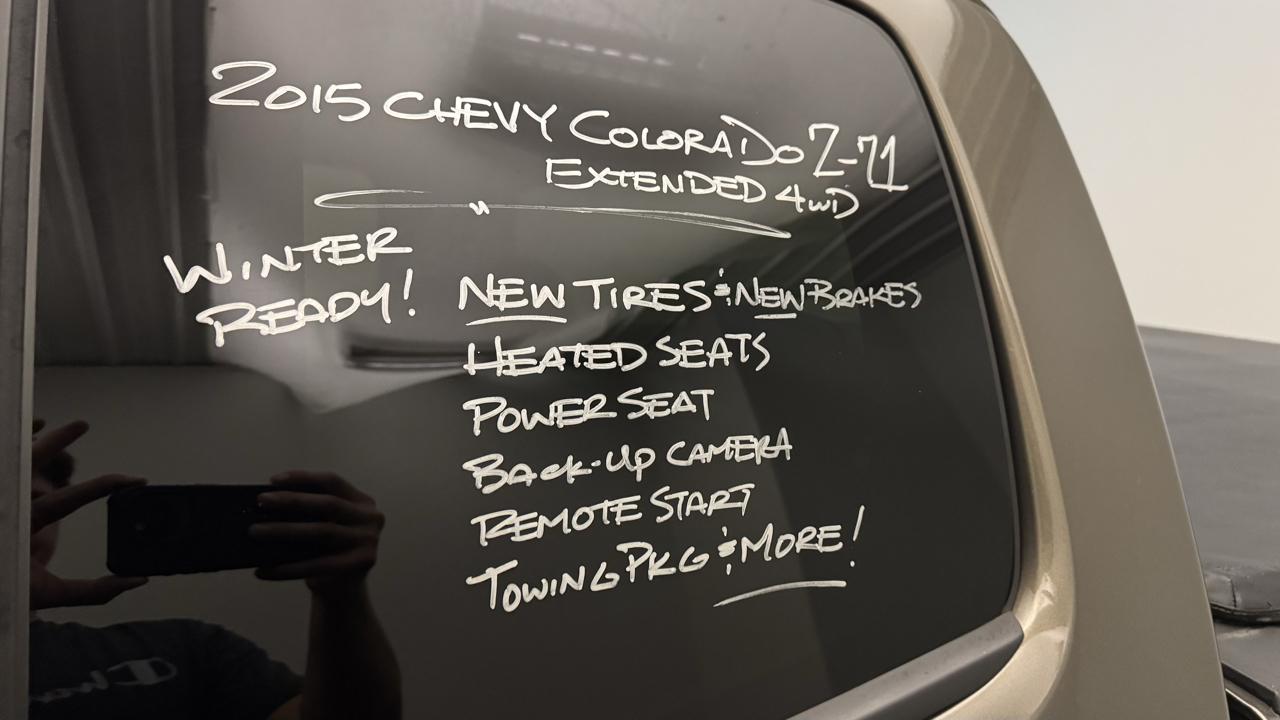 2015 CHEVY COLORADO Z-71
EXTENDED 4WD
WINTER
READY!
NEW TIRES & NEW BRAKES
HEATED SEATS
POWER SEAT
BACK-UP CAMERA
REMOTE START
TOWING PKG & MORE!